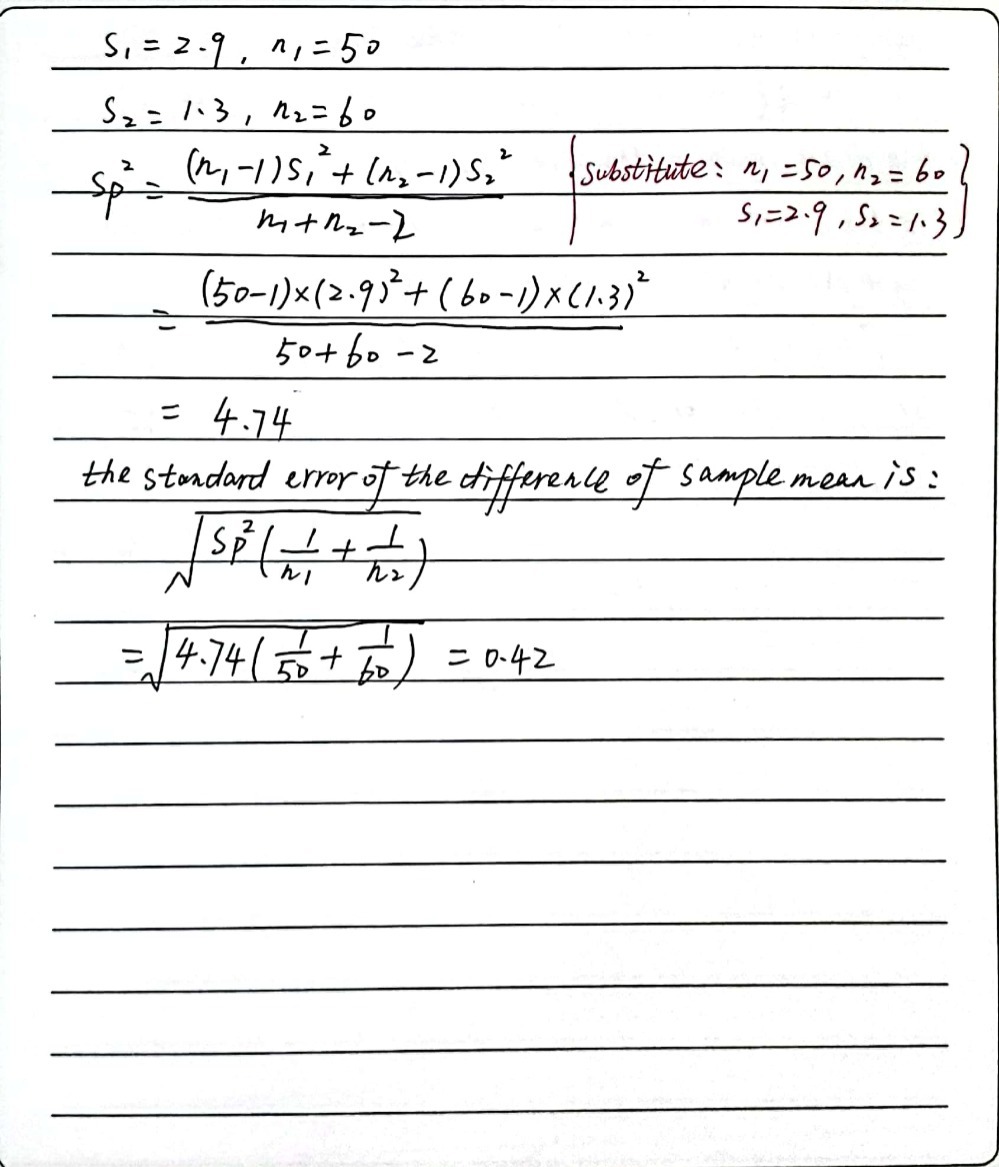 S₁ = 2.9, n₁ = 50
S₂ = 1.3, n₂ = 60
Sp² = ((n₁-1)S₁² + (n₂-1)S₂²) / (n₁+n₂-2) {Substitute: n₁=50, n₂=60
S₁=2.9, S₂=1.3}
= ((50-1)×(2.9)² + (60-1)×(1.3)²) / (50+60-2)
= 4.74
the standard error of the difference of sample mean is:
√(Sp²(1/n₁ + 1/n₂))
= √(4.74(1/50 + 1/60)) = 0.42